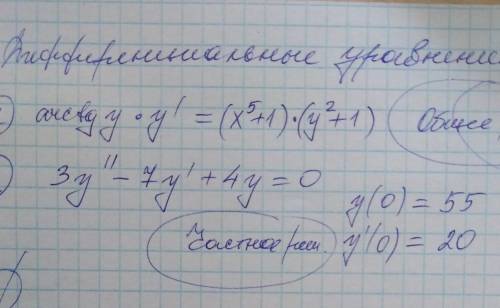 Диффиренциальные уравнения
) arcctg y · y' = (x⁵+1)·(y²+1) Общее
) 3y'' - 7y' + 4y = 0
y(0) = 55
Частное реш. y'(0) = 20